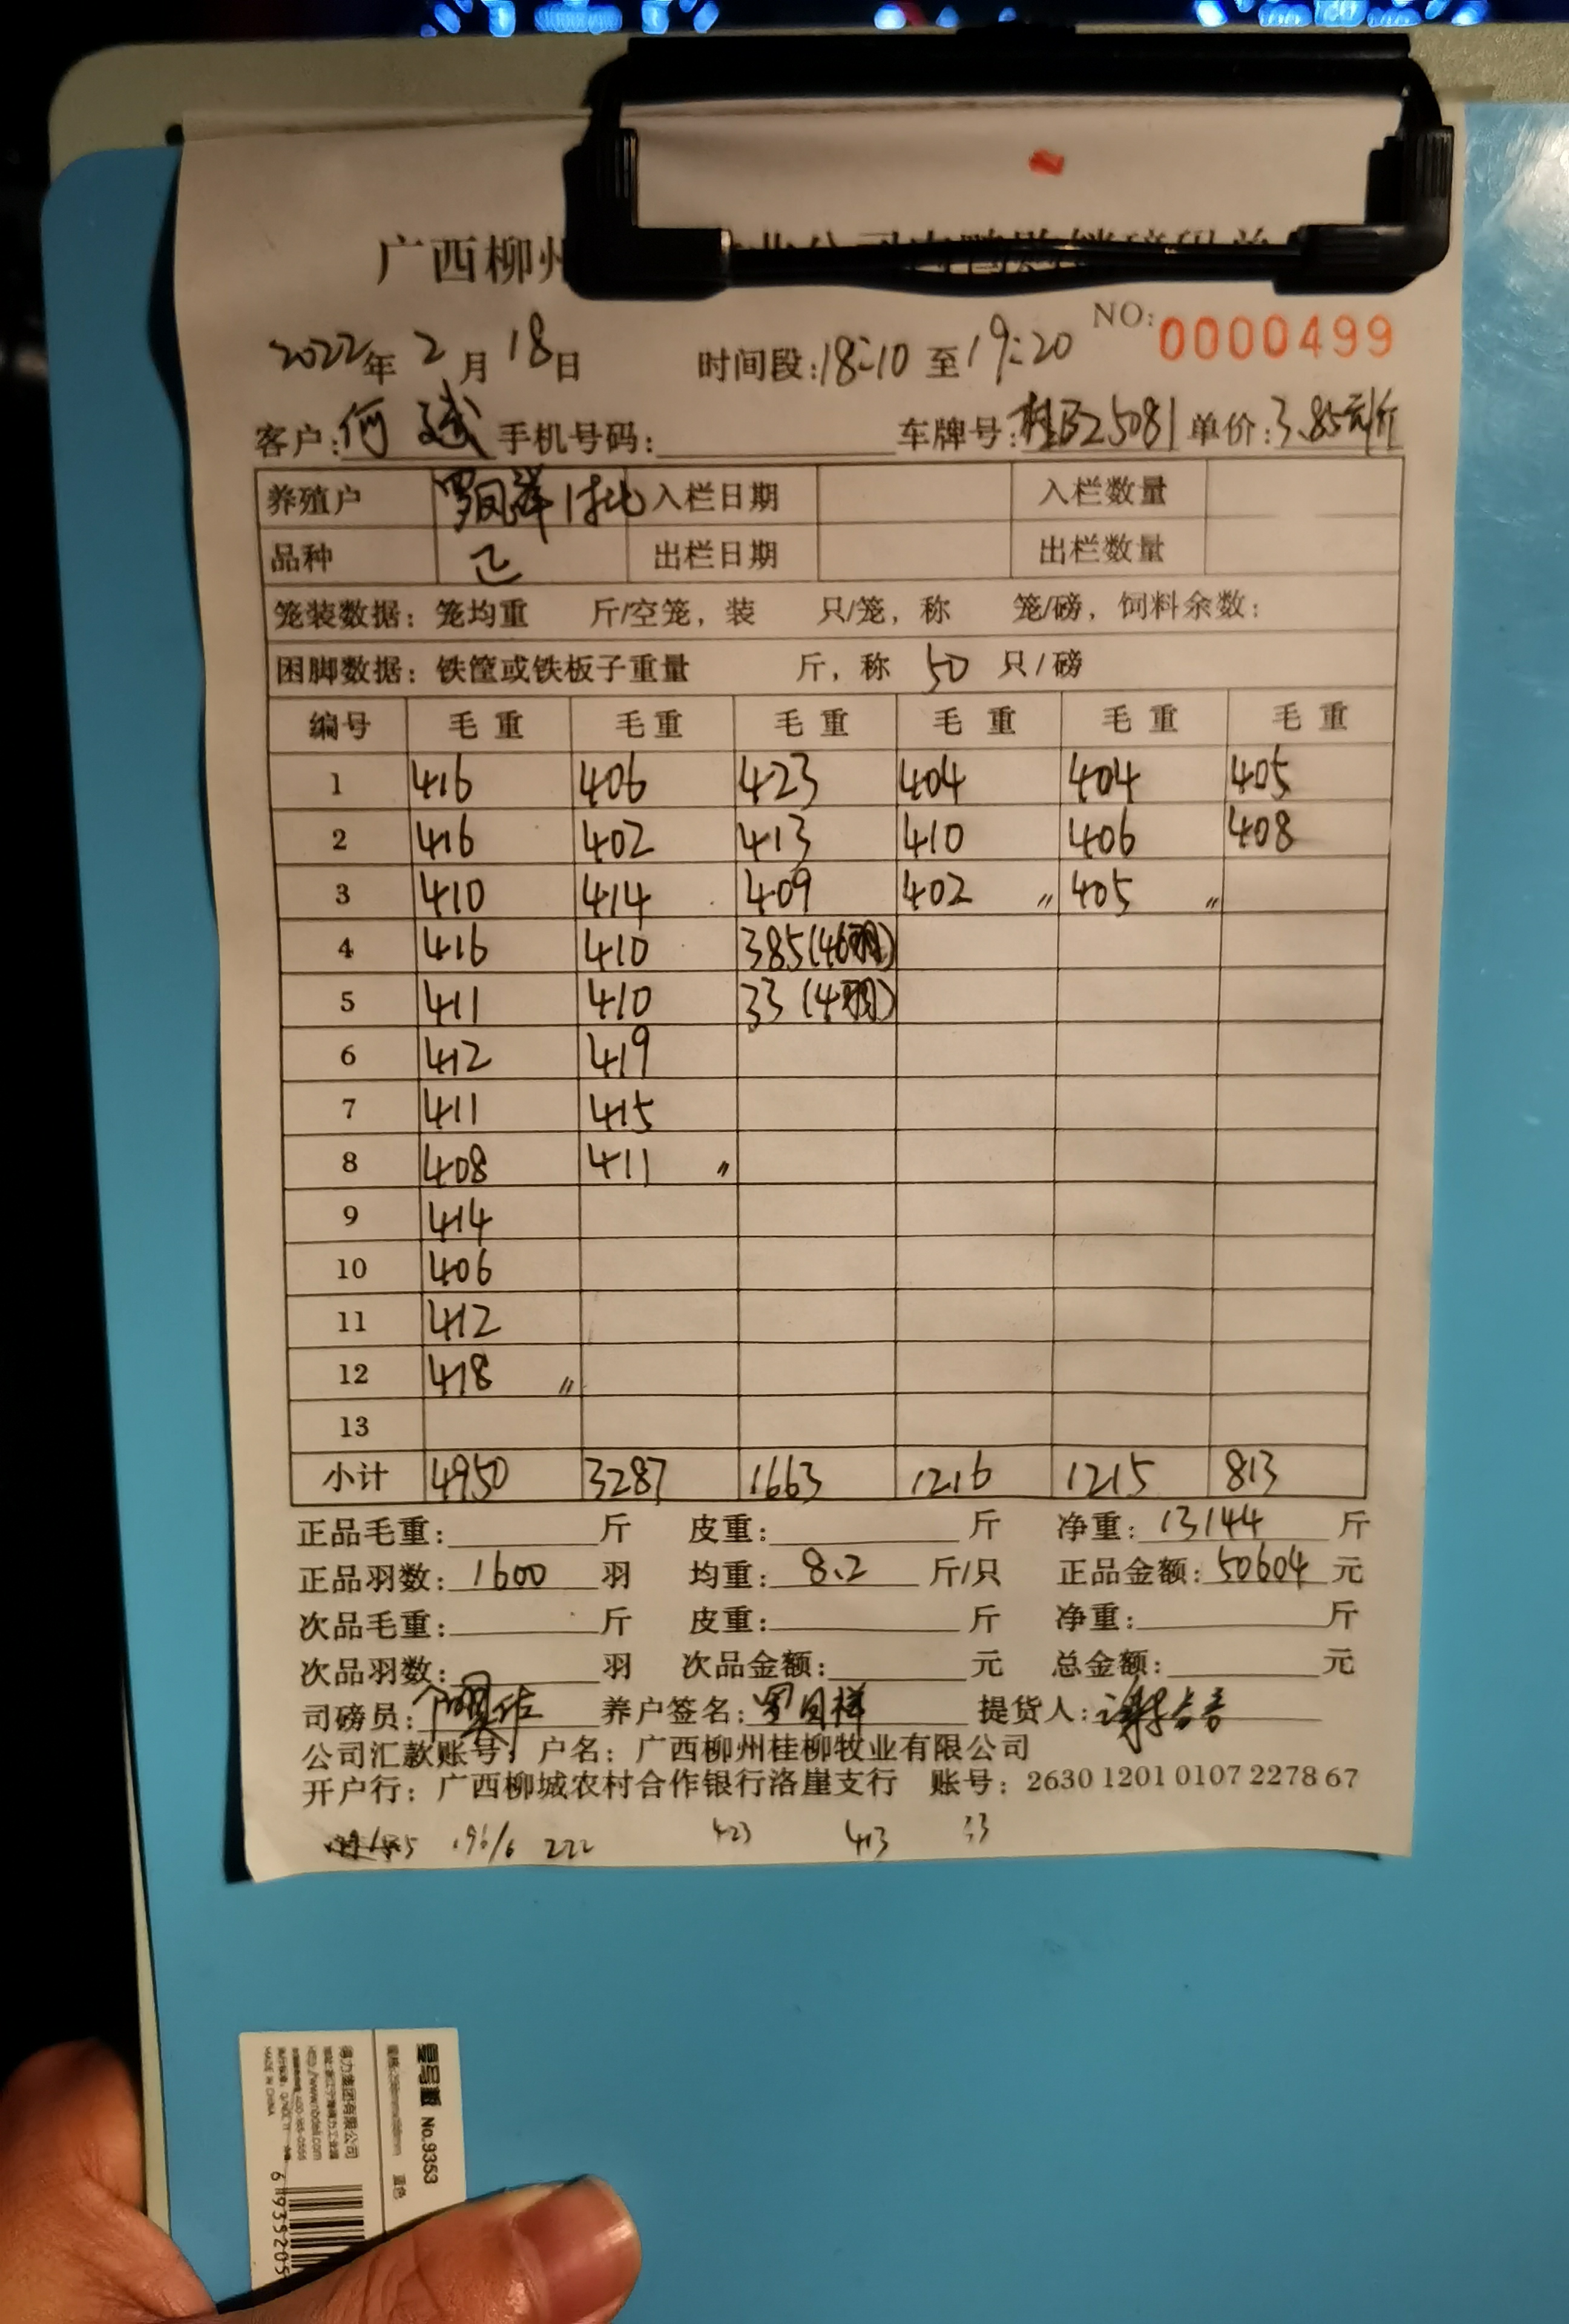 广西柳州
NO: 0000499
2022年 2 月 18 日 时间段:18:10 至 19:20
客户:何斌 手机号码: 车牌号:桂B25081 单价:3.85元/斤
养殖户 罗同祥1批 入栏日期 入栏数量
品种 乙 出栏日期 出栏数量
笼装数据:笼均重 斤/空笼,装 只/笼,称 笼/磅,饲料余数:
困脚数据:铁筐或铁板子重量 斤,称 50 只/磅
编号 毛重 毛重 毛重 毛重 毛重 毛重
1 416 406 423 404 404 405
2 416 402 413 410 406 408
3 410 414 409 402 〃 405 〃
4 416 410 385(46羽)
5 411 410 33(4羽)
6 412 419
7 411 415
8 408 411 〃
9 414
10 406
11 412
12 418 〃
13
小计 4950 3287 1663 1216 1215 813
正品毛重: 斤 皮重: 斤 净重:13144 斤
正品羽数:1600 羽 均重:8.2 斤/只 正品金额:50604 元
次品毛重: 斤 皮重: 斤 净重: 斤
次品羽数: 羽 次品金额: 元 总金额: 元
司磅员: 养户签名:罗同祥 提货人:
公司汇款账号:户名:广西柳州桂柳牧业有限公司
开户行:广西柳城农村合作银行洛崖支行 账号:2630 1201 0107 2278 67
196/6 222 423 413 33
No.9353
蓝色
得力集团有限公司
http://www.nbdeli.com
MADE IN CHINA
6 935205